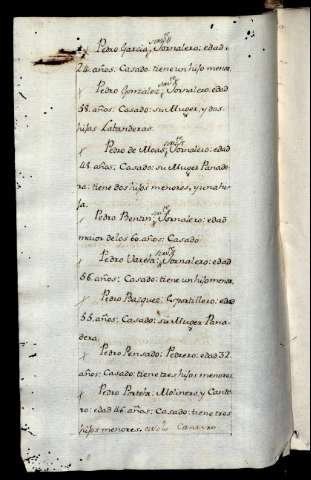 Pedro Garcia; Jornalero: edad
24. años: Casado: tiene un hijo menor.
Pedro Gonzalez; Jornalero: edad
58. años: Casado: su Muger, y dos
hijas Labanderas.
Pedro de Moas; Jornalero: edad
48. años: Casado: su Muger Panade-
ra: tiene dos hijos menores, y una hi-
ja.
Pedro Bentin; Jornalero: edad
maior de los 60. años: Casado
Pedro Varela; Jornalero: edad
56. años: Casado: tiene un hijo menor.
Pedro Basquez: Esportillero: edad
55. años: Casado: su Muger Pana-
dera.
Pedro Pensado: Pedrero: edad 32.
años: Casado: tiene tres hijos menores
Pedro Portela: Molinero, y Cante-
ro: edad 46. años: Casado: tiene tres
hijos menores. Cantero